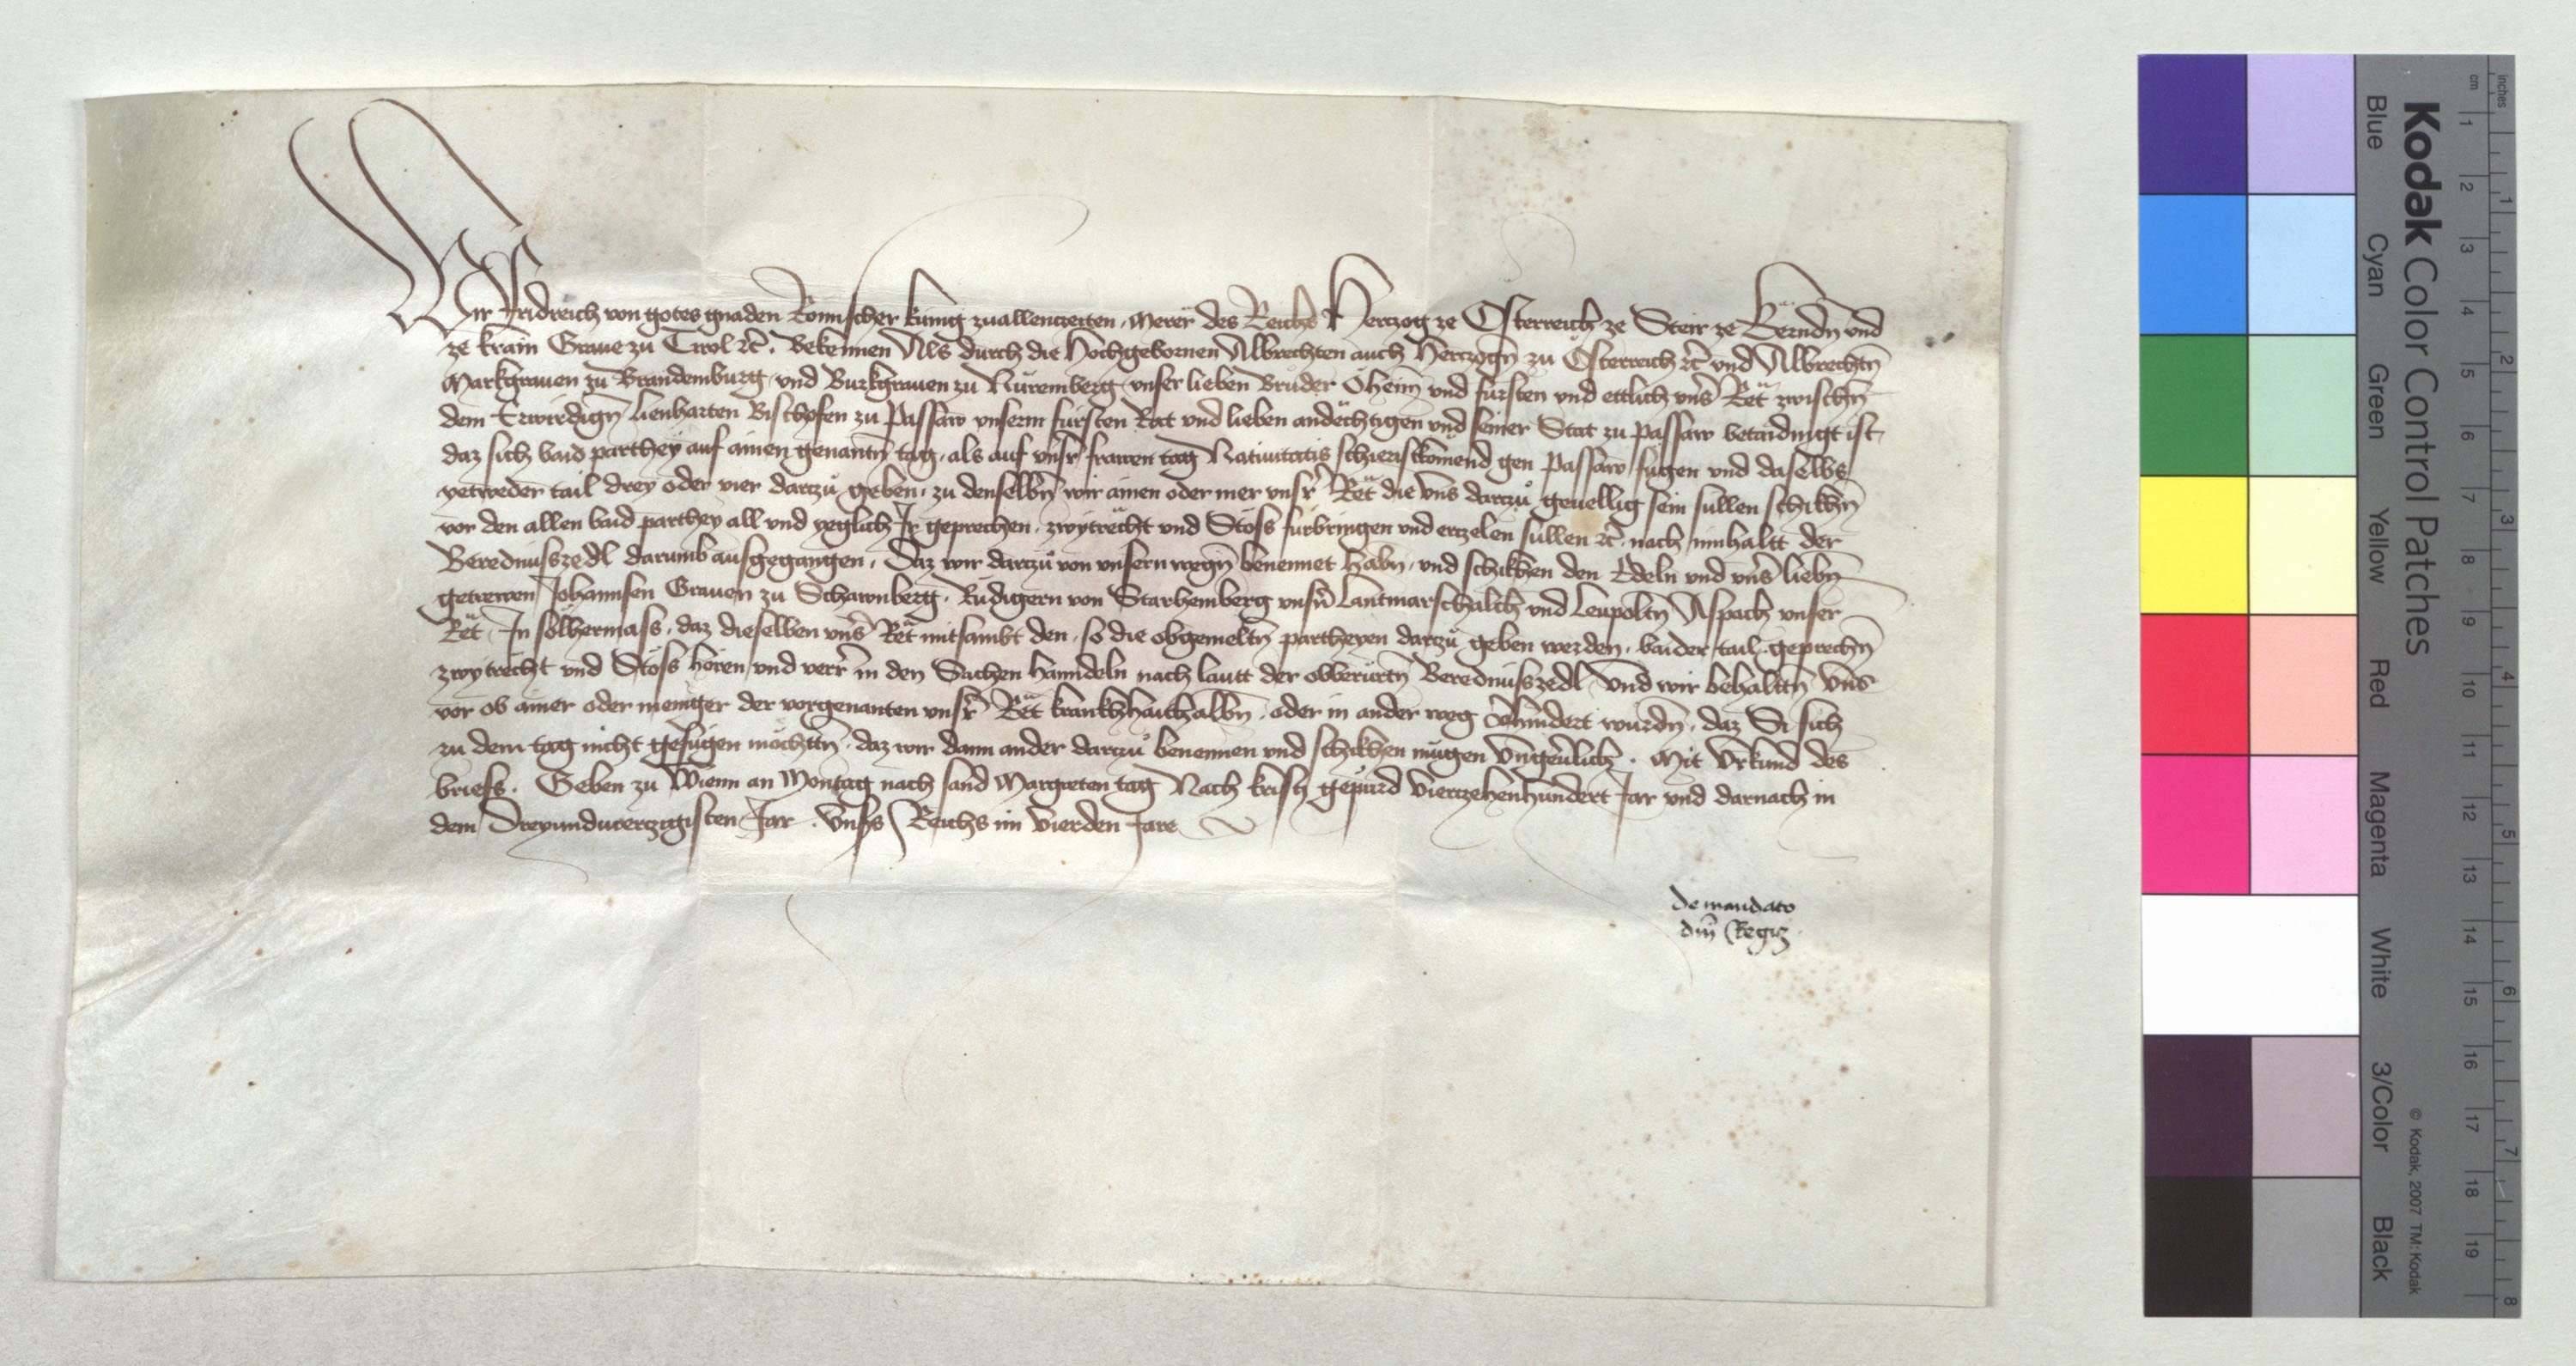 Wir Fridreich von gotes gnaden Romischer kunig zuallenczeiten, Merer des Reichs Herczog ze Österreich ze Steir ze Kernndn̄ und
ze krain Graue zu Tirol ꝛc̄. Bekennen Als durch die hochgebornen Albrechten auch Herczogn̄ zu Österreich ꝛc̄ und Albrechtn̄
Markgrauen zu Brandemburg, und Burkgrauen zu Nüremberg, vnser lieben Bruder Öheim̄ und fürsten und ettlich vns̄ Rët zwischn̄
dem Erwirdign̄ lienharten Bischofen zu Passaw vnserm fürsten Rat und lieben andechtigen und seiner Stat zu Passaw betaidingt ist,
daz sich baid parthey auf ainen genantn̄ tag, als auf vnsr̄ frawen tag Natiuitatis schieristkomend gen Passaw fugen und daselbs
yetweder tail drey oder vier darczů geben, zu denselbn̄ wir ainen oder mer vnsr̄ Rët die vns darczů geuellig sein sullen schikhn̄
vor den allen baid parthey all und yeglich Ir geprechen, zwytrëcht und Stöss fürbringen und erczelen süllen ꝛc̄. nach innhaltt der
Berednüsszedl darumb ausgegangen, Daz wir darczů von vnsern wegn̄ benennet habn̄, und schikhen den Edeln und vns̄ liebn̄
getrewen Johannsen Grauen zu Schawnberg, Rüdigern von Starhemberg vnsn̄ Lantmarschalch und Leupoltn̄ Aspach vnser
Rët, In sölhermass, daz dieselben vns̄ Rët mitsambt den, so die obgemeltn̄ partheyen darczů geben werden, baider tail geprechn̄
zwytrecht und Stöss hören, und verr̄ in den Sachen hanndeln nach lautt der obberürtn̄ Berednüsszedl, Und wir behaltn̄ vns
vor ob ainer oder meniger der vorgenanten vnsr̄ Rët krankhhaithalbn̄, oder in ander weg v̄hindert würdn̄, daz Si sich
zu dem tag nicht gefügen möchttn̄, daz wir dann ander darczů benennen und schikhen mügen Ungeuerlich. Mit Urkund des
briefs. Geben zu Wienn an Montag nach sand Margreten tag Nach krists gepürd Vierczehenhundert Jar und darnach in
dem Dreyunduierczigisten Jar. Vnsers Reichs im Vierden Jare
De mandato
dn̄i Regis
Kodak Color Control Patches
Blue Cyan Green Yellow Red Magenta White 3/Color Black
© Kodak, 2007 TM: Kodak
cm 1 2 3 4 5 6 7 8 9 10 11 12 13 14 15 16 17 18 19
inches 1 2 3 4 5 6 7 8